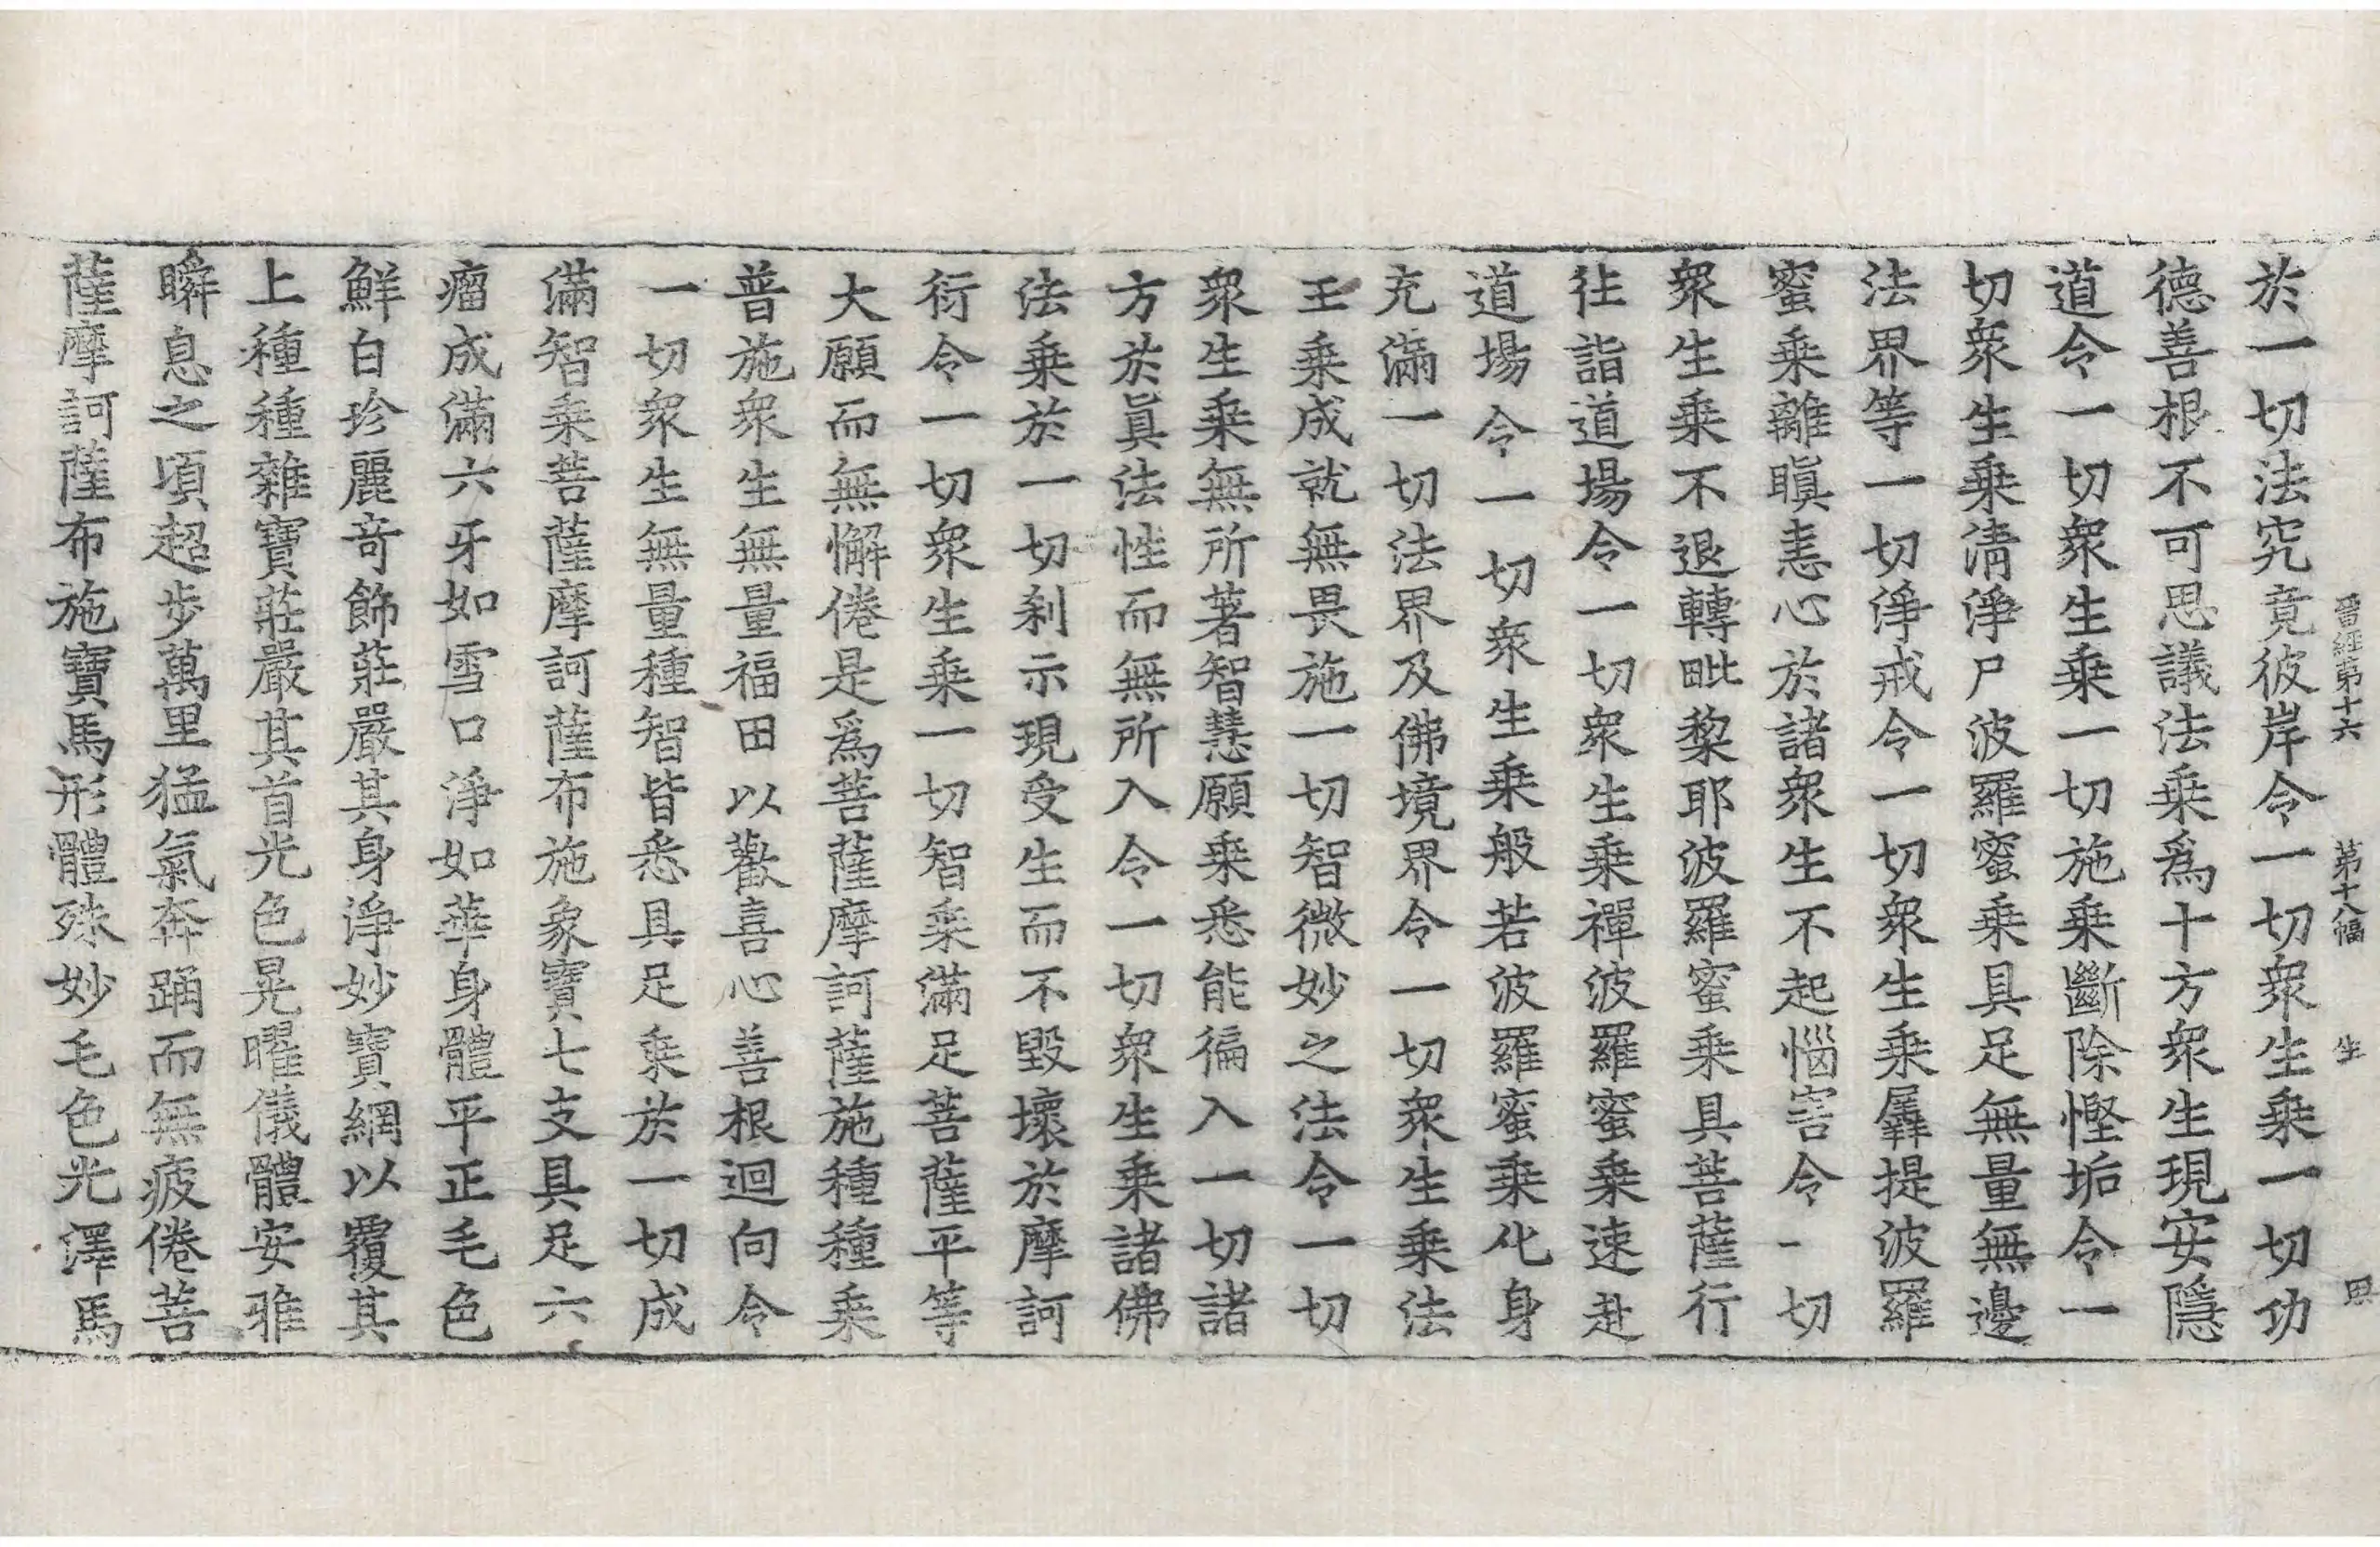 晉經第十六 第十八幅 生
於一切法究竟彼岸令一切衆生乘一切功
德善根不可思議法乘爲十方衆生現安隱
道令一切衆生乘一切施乘斷除慳垢令一
切衆生乘淸淨尸波羅蜜乘具足無量無邊
法界等一切淨戒令一切衆生乘羼提波羅
蜜乘離瞋恚心於諸衆生不起惱害令一切
衆生乘不退轉毗黎耶波羅蜜乘具菩薩行
徃詣道場令一切衆生乘禪波羅蜜乘速赴
道場令一切衆生乘般若波羅蜜乘化身
充滿一切法界及佛境界令一切衆生乘法
王乘成就無畏施一切智微妙之法令一切
衆生乘無所著智慧願乘悉能徧入一切諸
方於眞法性而無所入令一切衆生乘諸佛
法乘於一切刹示現受生而不毀壞於摩訶
衍令一切衆生乘一切智乘滿足菩薩平等
大願而無懈倦是爲菩薩摩訶薩施種種乘
普施衆生無量福田以歡喜心善根迴向令
一切衆生無量種智皆悉具足乘於一切成
滿智乘菩薩摩訶薩布施象寶七支具足六
瘤成滿六牙如雪口淨如華身體平正毛色
鮮白珍麗奇飾莊嚴其身淨妙寶網以覆其
上種種雜寶莊嚴其首光色晃曜儀體安雅
瞬息之頃超步萬里猛氣奔踊而無疲倦菩
薩摩訶薩布施寶馬形體殊妙毛色光澤馬